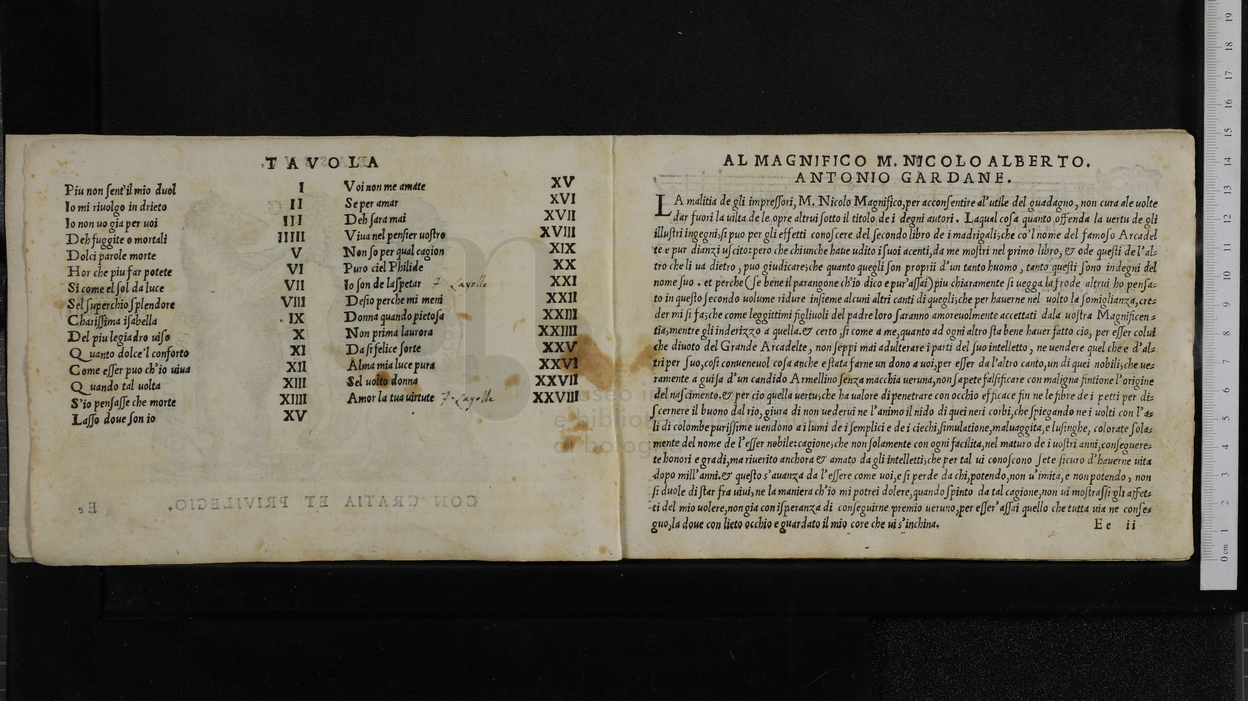 TAVOLA
Piu non sent'il mio duol I
Io mi riuolgo in drieto II
Io non uo gia per uoi III
Deh fuggite o mortali IIII
Dolci parole morte V
Hor che piu far potete VI
Si come el sol da luce VII
Sel superchio splendore VIII
Charissima isabella IX
Del piu legiadro uiso X
Quanto dolce'l conforto XI
Come esser puo ch'io uiua XII
Quando tal uolta XIII
S'io pensasse che morte XIIII
Lasso doue son io XV
Voi non me amate XV
Se per amar XVI
Deh sara mai XVII
Viua nel pensier uostro XVIII
Non so per qual cagion XIX
Puro ciel Philide XX
Io son de laspetar F. Layolle XXI
Desio perche mi meni XXII
Donna quando pietosa XXIII
Non prima laurora XXIIII
Da si felice sorte XXV
Alma mia luce pura XXVI
Sel uolto donna XXVII
Amor la tua uirtute F. Layolle XXVIII
AL MAGNIFICO M. NICOLO ALBERTO.
ANTONIO GARDANE.
LA malitia de gli impressori, M. Nicolo Magnifico, per acconsentire al'utile del guadagno, non cura ale uolte
dar fuori la uilta de le opre altrui sotto il titolo de i degni autori. Laqual cosa quanto offenda la uertu de gli
illustri ingegni, si puo per gli effetti conoscere del secondo libro de i madrigali; che co'l nome del famoso Arcadel
te e pur dianzi uscito: pero che chiunche haue udito i suoi acenti, da me mostri nel primo libro, & ode questi de l'al-
tro che li ua dietro, puo giudicare; che quanto quegli son proprii d'un tanto huomo, tanto questi sono indegni del
nome suo. et perche (se bene il parangone ch'io dico e pur'assai) piu chiaramente si uegga la frode altrui ho pensa-
to in questo secondo uolume ridure insieme alcuni altri canti di quegli; che per hauerne nel uolto la somiglianza, cre-
der mi si fa; che come leggittimi figliuoli del padre loro saranno amoreuolmente accettati dala uostra Magnificen-
tia, mentre gli inderizzo a quella. & certo, si come a me, quanto ad ogni altro sta bene hauer fatto cio, per esser colui
che diuoto del Grande Arcadelte, non seppi mai adulterare i parti del suo intelletto, ne uendere quel che e d'al-
tri per suo, cosi conueneuol cosa anche e stata farne un dono a uoi, per esser da l'altro canto, un di quei nobili; che ue-
ramente a guisa d'un candido Armellino senza macchia ueruna, non sapete falsificare con maligna fintione l'origine
del nascimento. & per cio quella uertu; che ha ualore di penetrare con occhio efficace fin ne le fibre de i petti per di-
scernere il buono dal rio, giura di non uederui ne l'animo il nido di quei neri corbi, che spiegando ne i uolti con l'a-
li di colombe purissime uendono a i lumi de i semplici e de i ciechi, simulatione, maluaggita, e lusinghe, colorate sola-
mente del nome de l'esser nobile: cagione; che non solamente con ogni facilita, nel maturo de i uostri anni, conseguere-
te honori e gradi, ma riuerito anchora & amato da gli intelletti; che per tal ui conoscono sete sicuro d'hauerne uita
dopo mill'anni. & questo s'auanza da l'essere come uoi, e si perde da chi, potendo, non u'imita, e non potendo, non
si duole di star fra uiui; ne la maniera ch'io mi potrei dolere, quando spinto da tal cagione, non ui mostrassi gli affet-
ti del mio uolere, non gia con isperanza di conseguirne premio ueruno, per esser'assai quello che tutta uia ne conse-
guo, la doue con lieto occhio e guardato il mio core che ui s'inchina.
Ee ii